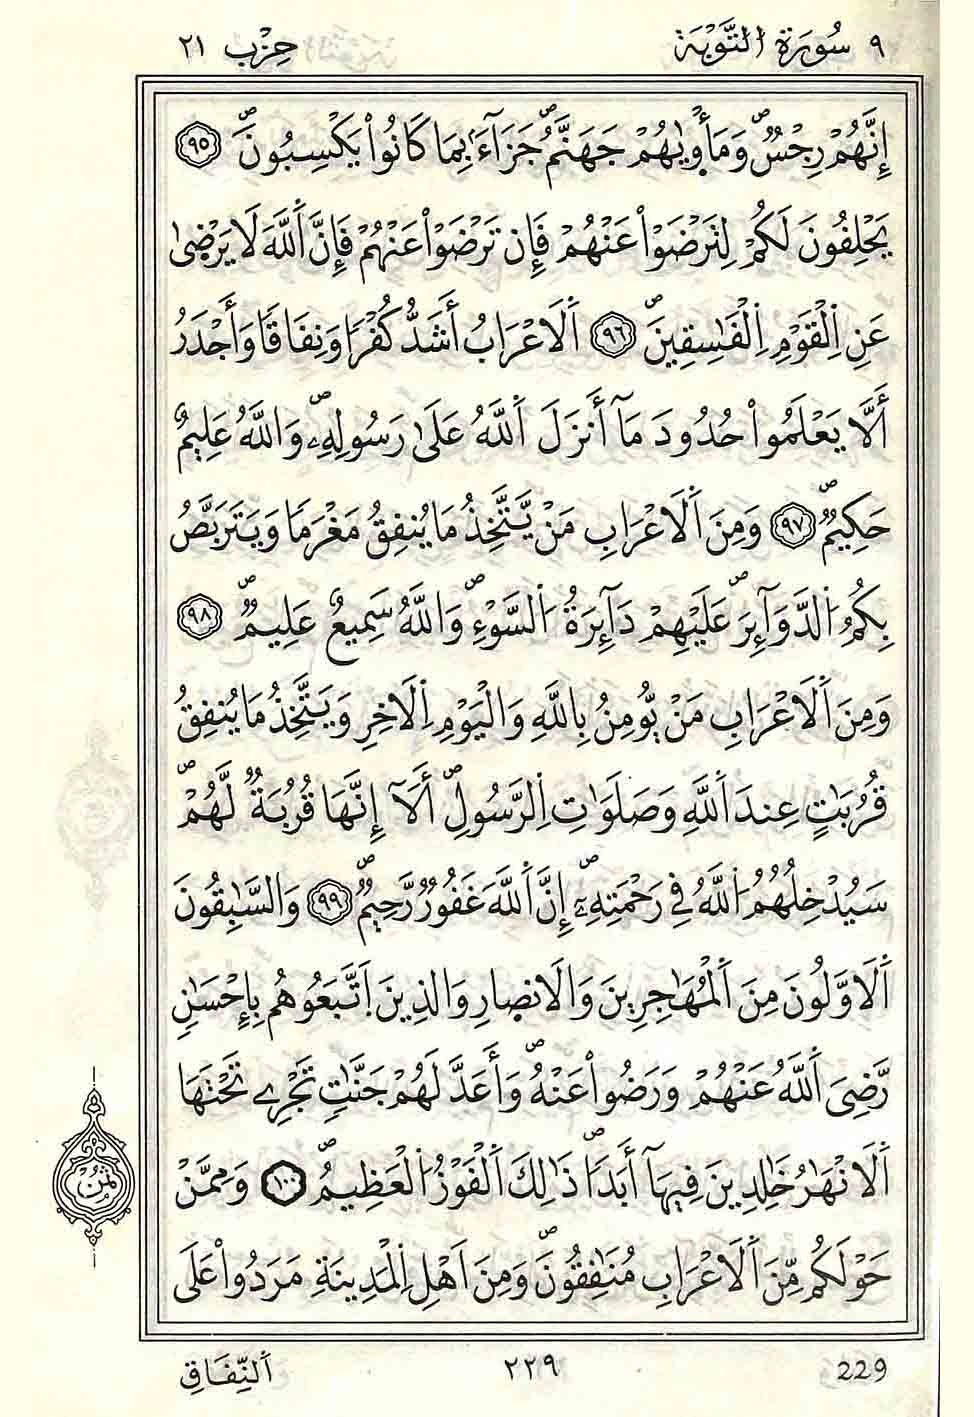 ٩ سُورَةُ التَّوْبَة حِزْب ٢١
إِنَّهُمْ رِجْسٌ وَمَأْوٜيٰهُمْ جَهَنَّمُ جَزَآءَۢ بِمَا كَانُواْ يَكْسِبُونَ ٩٥
يَحْلِفُونَ لَكُمْ لِتَرْضَوْاْ عَنْهُمْ فَإِن تَرْضَوْاْ عَنْهُمْ فَإِنَّ اَللَّهَ لَا يَرْضَىٰ
عَنِ اِلْقَوْمِ اِلْفَٰسِقِينَ ٩٦ اَلَاعْرَابُ أَشَدُّ كُفْرًا وَنِفَاقًا وَأَجْدَرُ
أَلَّا يَعْلَمُواْ حُدُودَ مَآ أَنزَلَ اَللَّهُ عَلَىٰ رَسُولِهِۦ وَاللَّهُ عَلِيمٌ
حَكِيمٌ ٩٧ وَمِنَ اَلَاعْرَابِ مَنْ يَّتَّخِذُ مَا يُنفِقُ مَغْرَمًا وَيَتَرَبَّصُ
بِكُمُ اُلدَّوَآئِرَ عَلَيْهِمْ دَآئِرَةُ اُلسَّوْءِ وَاللَّهُ سَمِيعٌ عَلِيمٌ ٩٨
وَمِنَ اَلَاعْرَابِ مَنْ يُّومِنُ بِاللَّهِ وَالْيَوْمِ اِلَاخِرِ وَيَتَّخِذُ مَا يُنفِقُ
قُرُبَٰتٍ عِندَ اَللَّهِ وَصَلَوَٰتِ اِلرَّسُولِ أَلَآ إِنَّهَا قُرُبَةٌ لَّهُمْ
سَيُدْخِلُهُمُ اُللَّهُ فِي رَحْمَتِهِۦٓ إِنَّ اَللَّهَ غَفُورٌ رَّحِيمٌ ٩٩ وَالسَّٰبِقُونَ
اَلَاوَّلُونَ مِنَ اَلْمُهَٰجِرِينَ وَالَانصِارِ وَالذِينَ اَتَّبَعُوهُم بِإِحْسَٰنٍ
رَّضِيَ اَللَّهُ عَنْهُمْ وَرَضُواْ عَنْهُ وَأَعَدَّ لَهُمْ جَنَّٰتٍ تَجْرِي تَحْتَهَا
اَلَانْهَٰرُ خَٰلِدِينَ فِيهَآ أَبَدًا ذَٰلِكَ اَلْفَوْزُ اُلْعَظِيمُ ١٠٠ وَمِمَّنْ
ثُمُن
حَوْلَكُم مِّنَ اَلَاعْرَابِ مُنَٰفِقُونَ وَمِنَ اَهْلِ اِلْمَدِينَةِ مَرَدُواْ عَلَى
اَلنِّفَاقِ ٢٢٩ 229